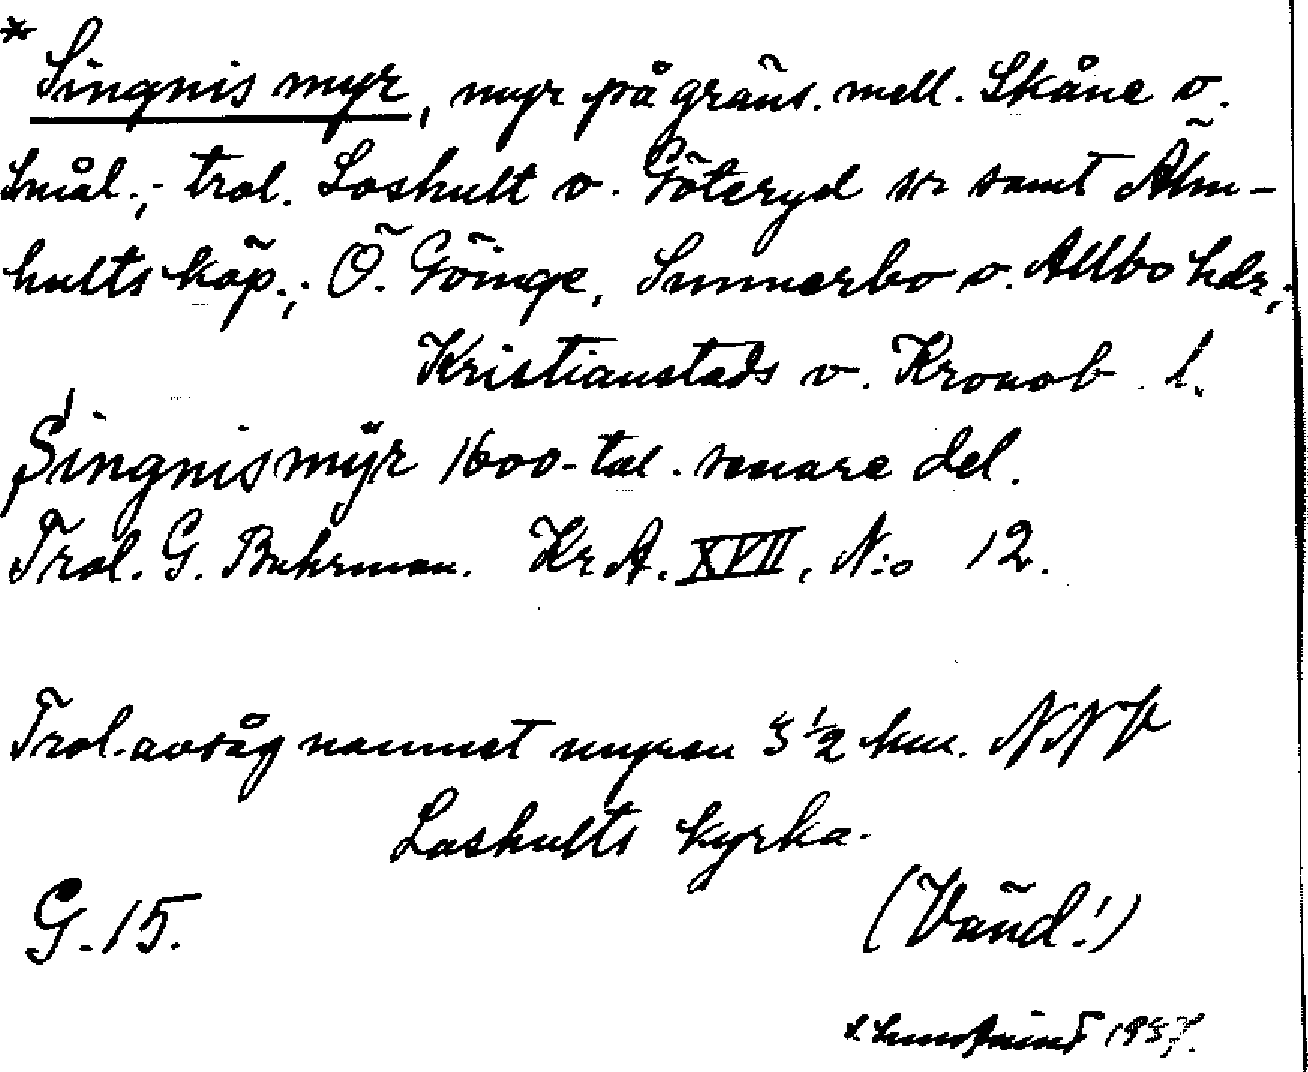 * Singnis myr, myr på gräns. mell. Skåne o.
Smål.; trol. Loshult o. Göteryd sr samt Älm-
hults köp.; Ö. Göinge, Sunnerbo o. Allbo hdr,;
Kristianstads o. Kronob. l.
Singnis mÿr 1600-tal. senare del.
Trol. G. Buhrman. Kr A. XVII, N:o 12.
Trol. avsåg namnet myren 3 1/2 km. NNV
Loshults kyrka.
G. 15.
(Vänd!)
1937.